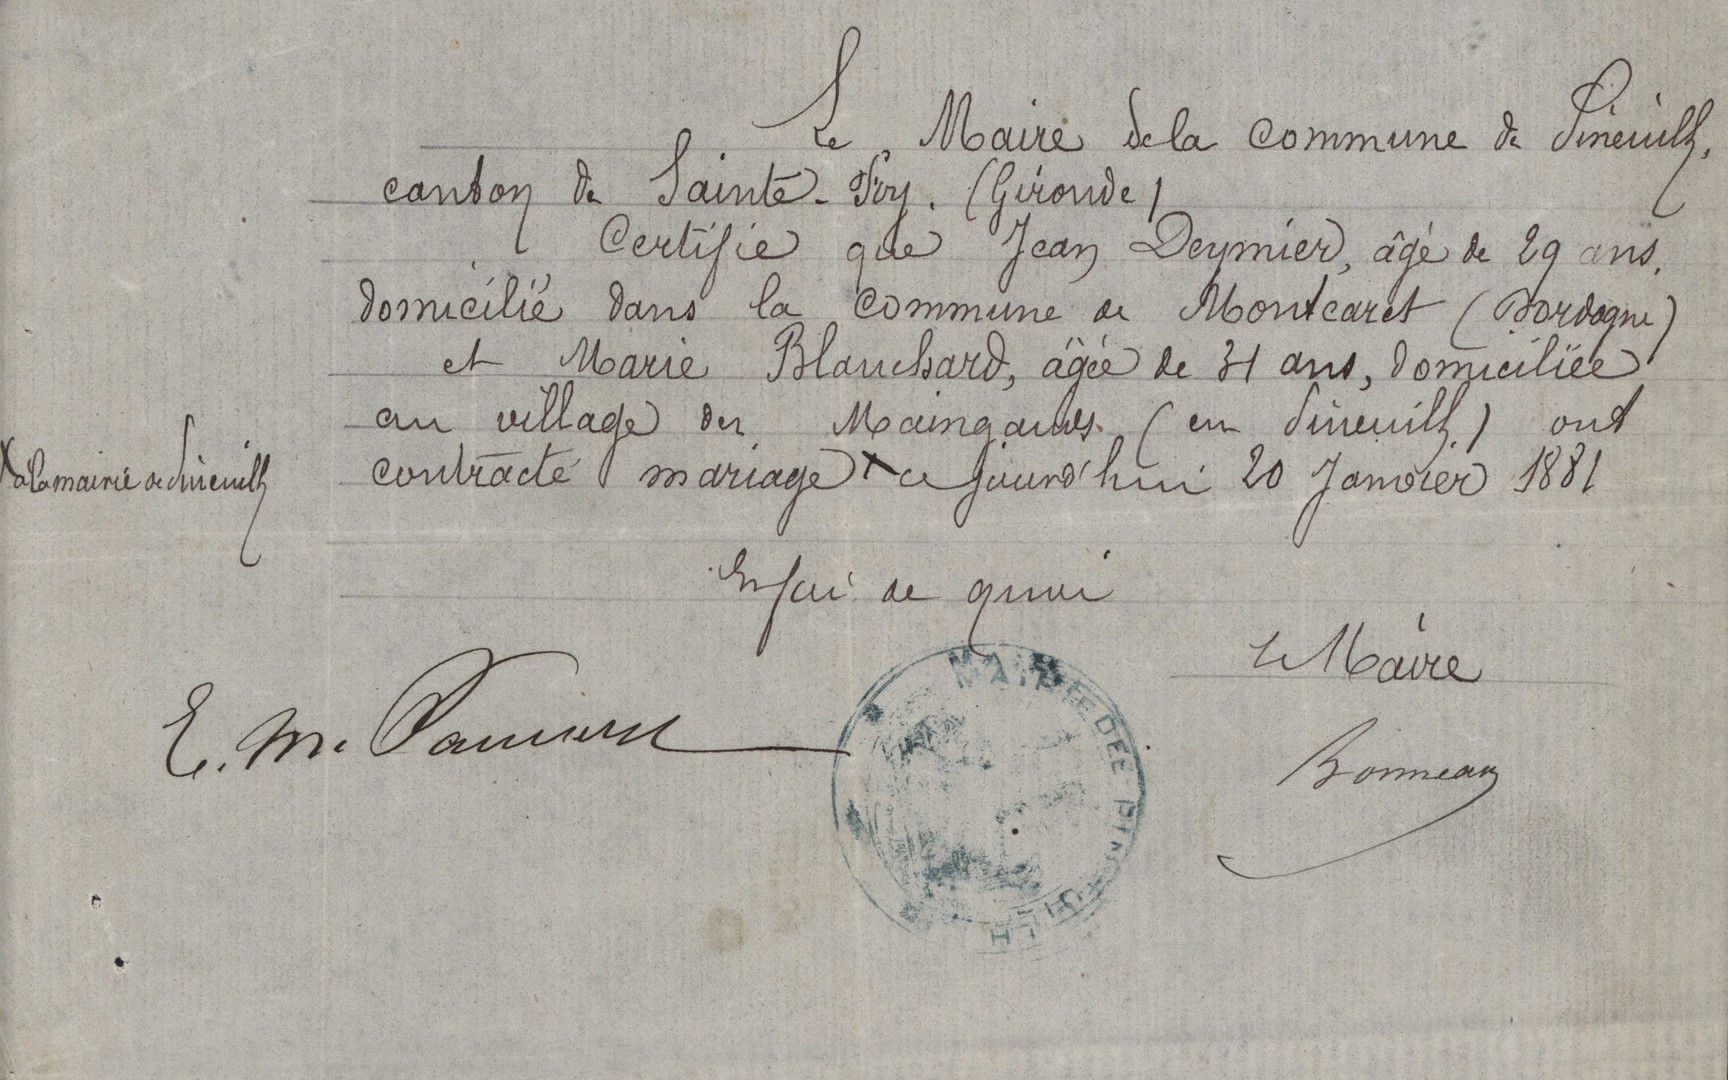 Le Maire de la commune de Pineuilh,
canton de Sainte-Foy. (Gironde)
Certifie que Jean Deymier, âgé de 29 ans,
domicilié dans la commune de Montcaret (Dordogne)
et Marie Blanchard, âgée de 31 ans, domiciliée
au village des (en Pineuilh) ont
contracté mariage x ce jourd'hui 20 Janvier 1881
x à la mairie de Pineuilh
En foi de quoi
Le Maire
E. M.
Bonneau
MAIRIE DE PINEUILH